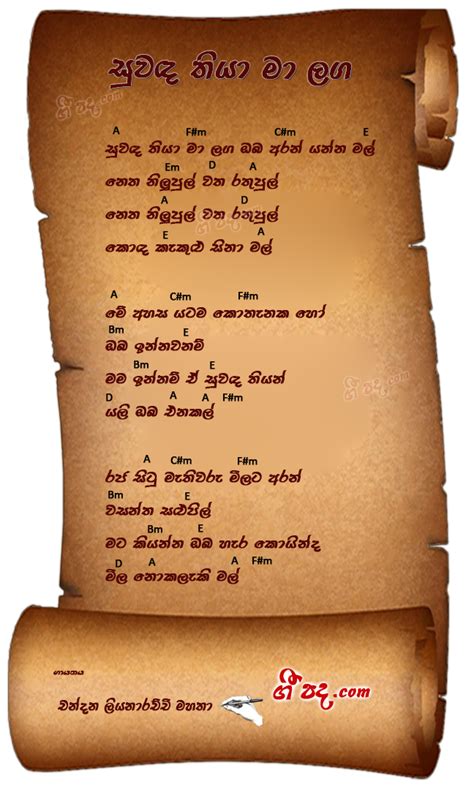 සුවඳ තියා මා ලග
ගී පද.com
A F#m C#m E
සුවඳ තියා මා ලග ඔබ අරන් යන්න මල්
Em D A
නෙත නිලුපුල් වත රතුපුල්
A D
නෙත නිලුපුල් වත රතුපුල්
E A
කොඳ කැකුළු සිනා මල්
A C#m F#m
මේ අහස යටම කොතැනක හෝ
Bm E
ඔබ ඉන්නවනම්
Bm E
මම ඉන්නම් ඒ සුවඳ තියන්
ගී පද.com
D A A F#m
යලි ඔබ එනකල්
A C#m F#m
රජ සිටු මැතිවරු මිලට අරන්
Bm E
වසන්ත සළුපිල්
Bm E
මට කියන්න ඔබ හැර කොයින්ද
D A A F#m
මිල නොකලැකි මල්
ගායනය
ගී පද.com
චන්දන ලියනාරච්චි මහතා